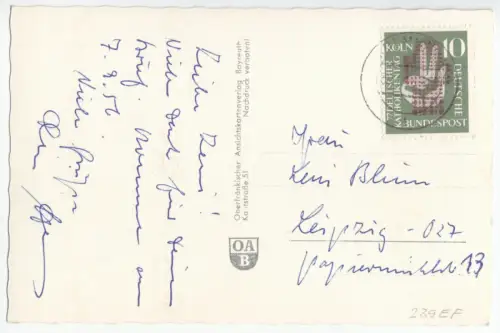 Liebe Leni!
Viele Dank für Dein
Brief. Komme am
7.9.56.
Viele Grüße
Oberfränkischer Ansichtskartenverlag Bayreuth
Kantstraße 51
Nachdruck verboten!
OA
B
KÖLN 10
77. DEUTSCHER
KATHOLIKENTAG
DEUTSCHE
BUNDESPOST
Frau
Leni Blum
Leipzig - O27
Papiermühlstr 13
239 EF